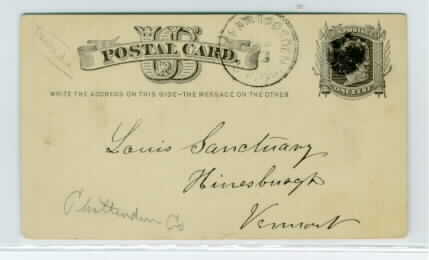 US
POSTAL CARD.
WRITE THE ADDRESS ON THIS SIDE-THE MESSAGE ON THE OTHER
ONE CENT
Louis Sanctuary
Hinesburgh
Vermont
Chittenden Co